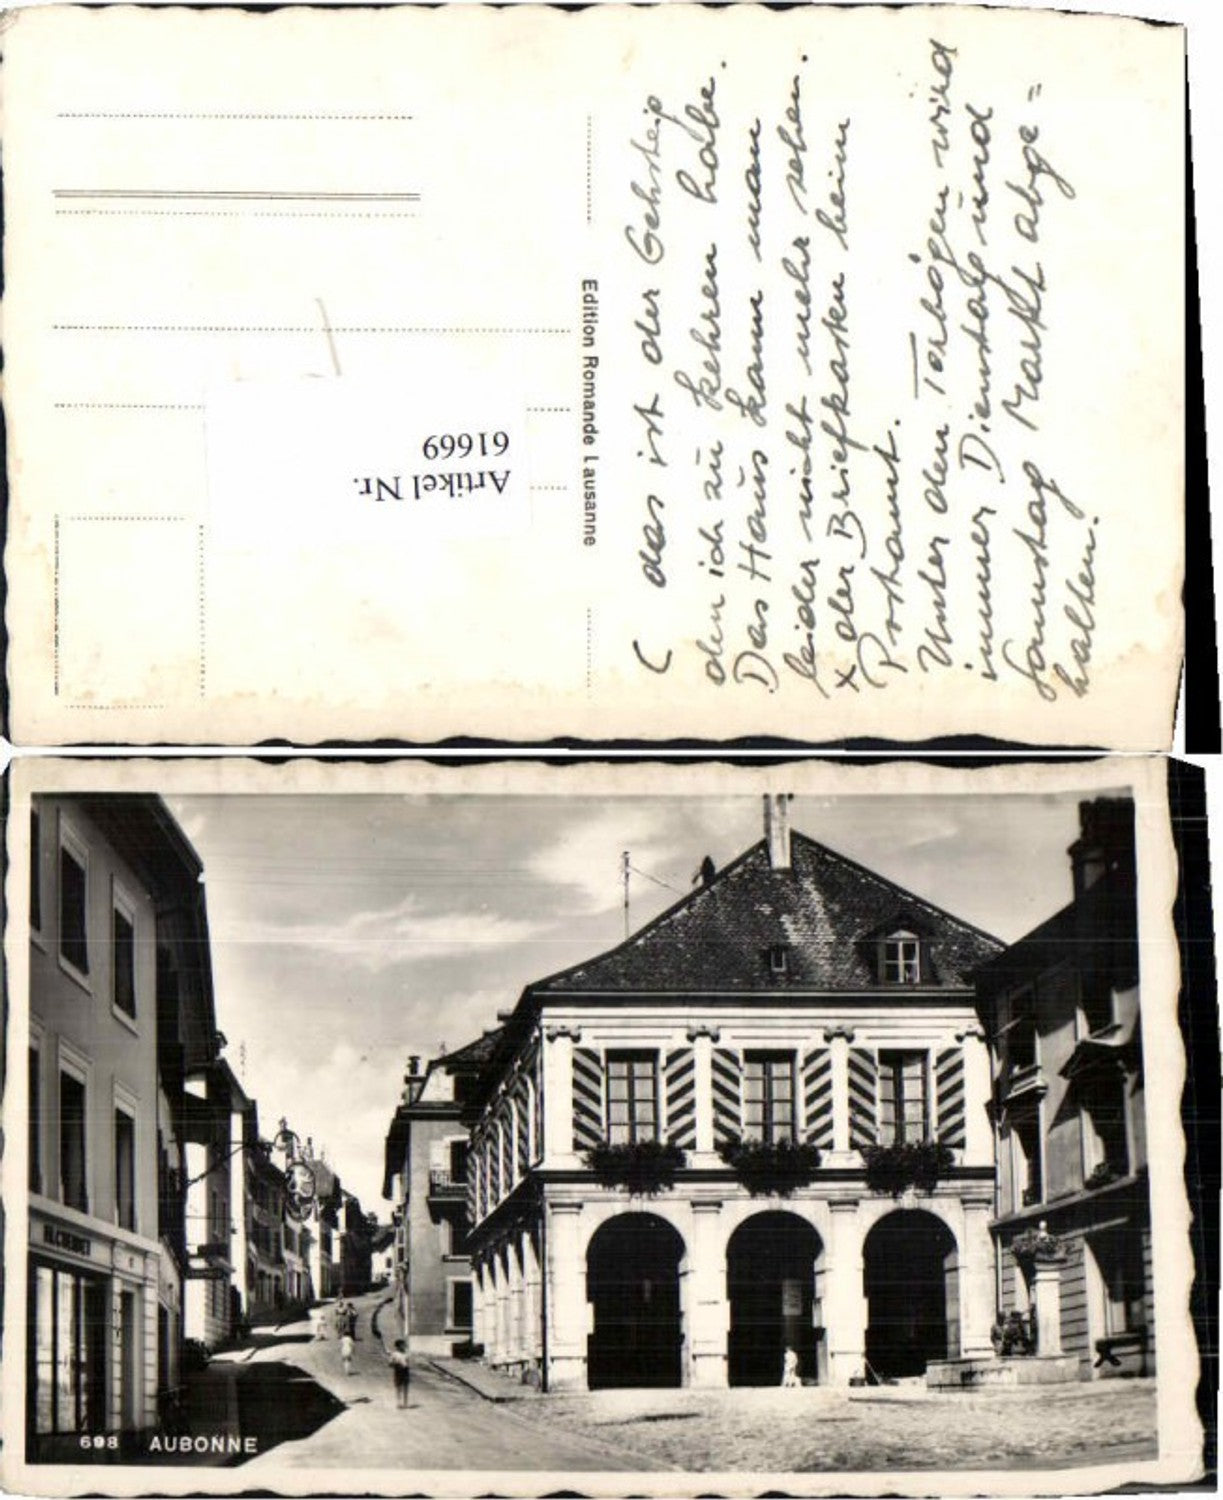 ( das ist der Gehsteig
den ich zu kehren habe.
Das Haus kann man
leider nicht mehr sehen.
x der Briefkasten beim
Postamt.
Unter den Torbögen wird
immer Dienstag und
Samstag Markt abge=
halten.
Edition Romande Lausanne
Artikel Nr.
61669
698 AUBONNE